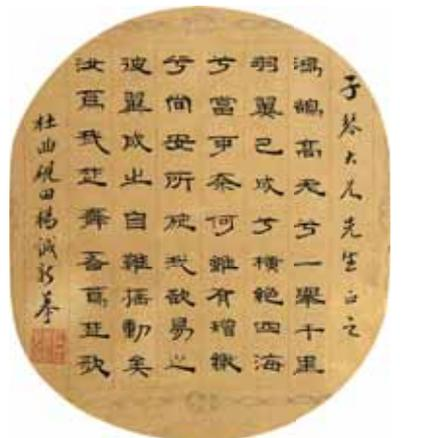 子琴大兄先生正之
鴻鵠高飛兮一舉千里
羽翼已成兮橫絕四海
兮當可奈何雖有矰繳
兮尚安所施我欲易之
彼翼成之自難搖動矣
汝爲我楚舞吾爲楚歌
杜曲硯田楊誠新摹